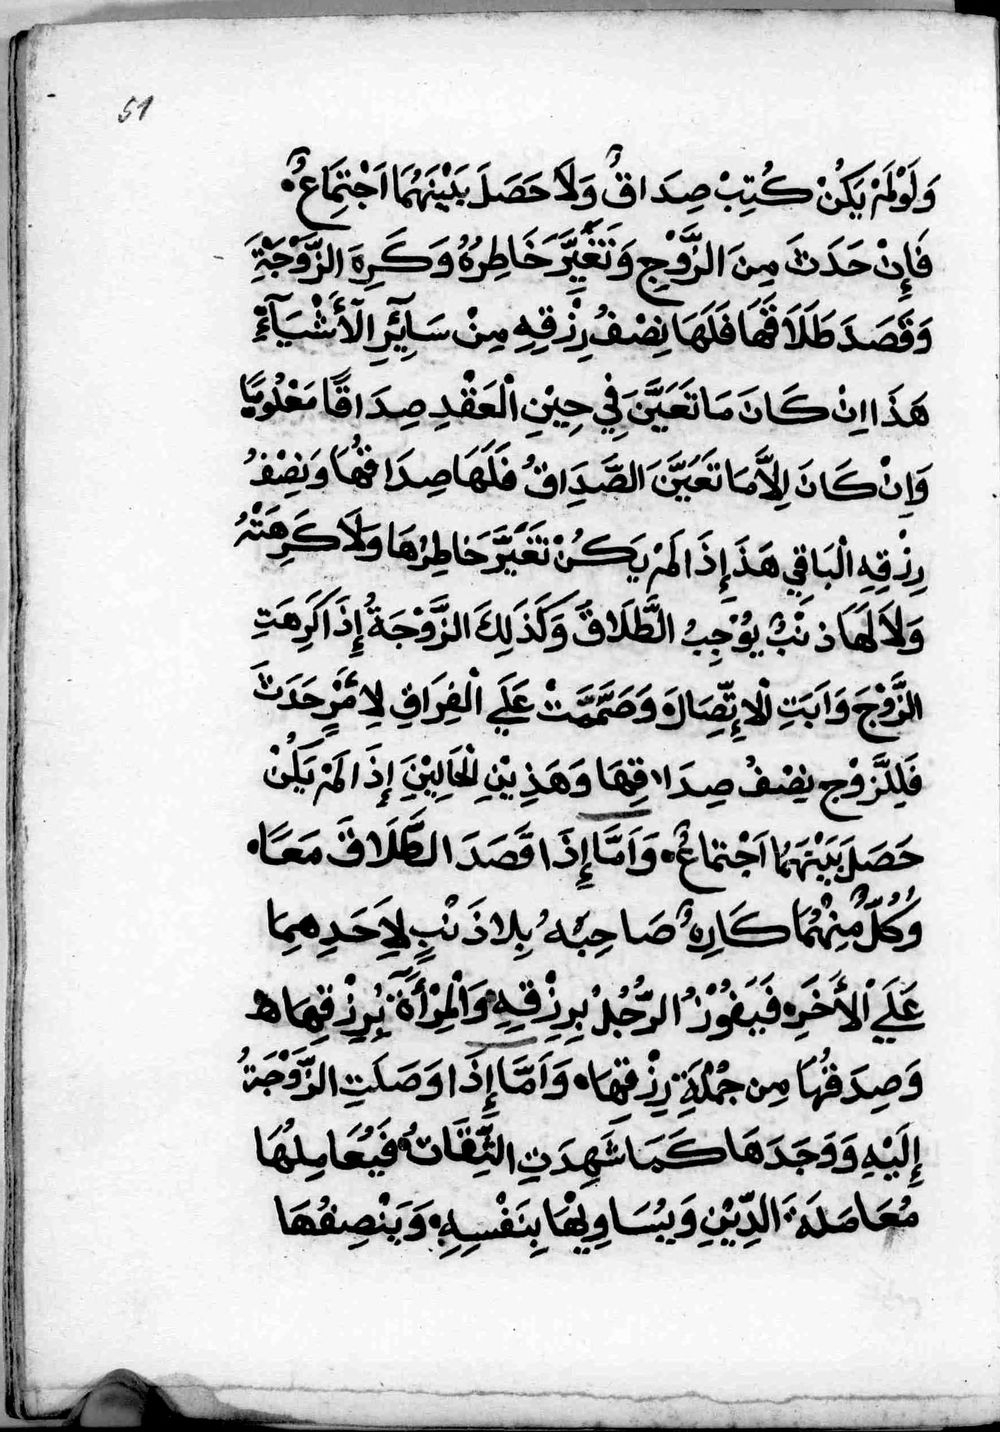 51
وَلَوْ لَمْ يَكُنْ كُتِبْ صِدَاقٌ وَلَا حَصَلَ بَيْنَهُمَا اَجْتِمَاعٌ.
فَإِنْ حَدَثَ مِنَ الزَّوْجِ وَتَغَيَّرَ خَاطِرُهُ وَكَرِهَ الزَّوْجَةِ
وَقَصَدَ طَلَاقَهَا فَلَهَا نِصْفُ رِزْقِهِ مِنْ سَآئِرِ الْأَشْيَآءِ
هَذَا اِنْ كَانَ مَا تَعَيَّنَ فِي حِيْنِ الْعَقْدِ صِدَاقًا مَعْلُومًا
وَاِنْ كَانَ اِلَّا مَا تَعَيَّنَ الصَّدَاقُ فَلَهَا صِدَاقُهَا وَنِصْفُ
رِزْقِهِ الْبَاقِي هَذَ إِذَا لَمْ يَكُنْ تَغَيَّرَ خَاطِرُهَا وَلَا كَرِهَتْهُ
وَلَا لَهَا ذَنْبٌ يُوْجِبُ الطَّلَاقَ وَكَذَلِكَ الزَّوْجَةُ إِذَا كَرِهَتِ
الزَّوْجَ وَاَبَتِ الْاِتِّصَالَ وَصَمَّمَتْ عَلَي الْفِرَاقِ لِاَمْرٍ حَدَثَ
فَلِلزَّوْجِ نِصْفُ صِدَاقِهَا وَهَذِيْنِ الْحَالِيْنِ إِذَا لَمْ يَكُنْ
حَصَلَ بَيْنَهُمَا اَجْتَمَاعٌ. وَاَمَّا إِذَا قَصَدَ الطَّلَاقَ مَعًا.
وَكُلٌّ مِنْهُمَا كَارِهٌ صَاحِبَهُ بِلَا ذَنْبٍ لِاَحَدِهِمَا
عَلَي الْأَخَرِ. فَيَفُوْزُ الرَّجُلُ بِرِزْقِهِ وَالْمِرْأَةُ بِرِزْقِهَا
وَصِدَقُهَا مِن جُمْلَةِ رِزْقِهَا. وَاَمَّا إِذَا وَصَلَتِ الزَّوْجَةُ
إِلَيْهِ وَوَجَدَهَا كَمَا شَهِدَتِ الثِّقَاتُ فَيُعَامِلُهَا
مُعَامَلَةَ الدِّيْنِ وَيُسَاوِيْهَا بِنَفْسِهِ. وَيَنْصِفُهَا